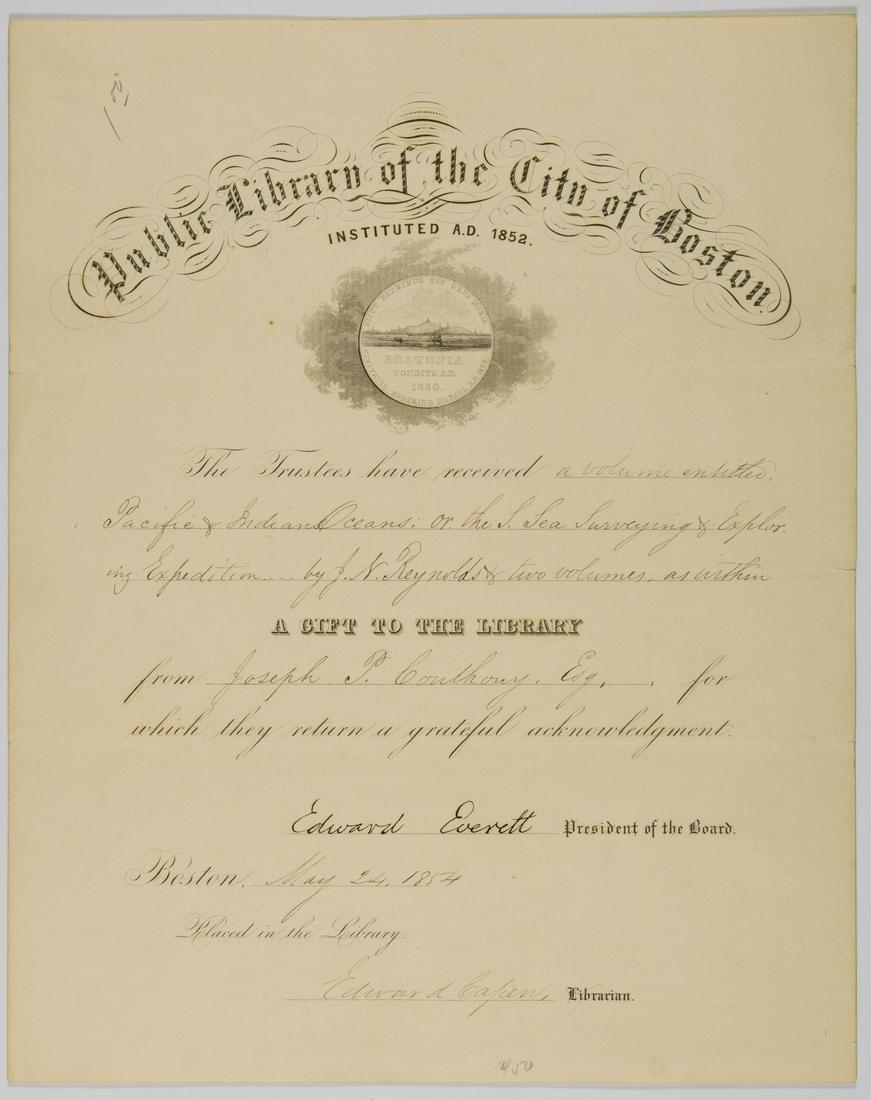 Public Library of the City of Boston.
INSTITUTED A.D. 1852.
SICUT PATRIBUS SIT DEUS NOBIS
BOSTONIA
CONDITA A.D.
1630.
CIVITATIS REGIMINE DONATA A.D. 1822.
The Trustees have received a volume entitled,
Pacific & Indian Oceans: or, the S. Sea Surveying & Explor-
ing Expedition.... by J. N. Reynolds & two volumes, as within
A GIFT TO THE LIBRARY
from Joseph P. Couthouy, Esq., for
which they return a grateful acknowledgment.
Edward Everett President of the Board.
Boston, May 24, 1854
Placed in the Library.
Edward Capen, Librarian.
450